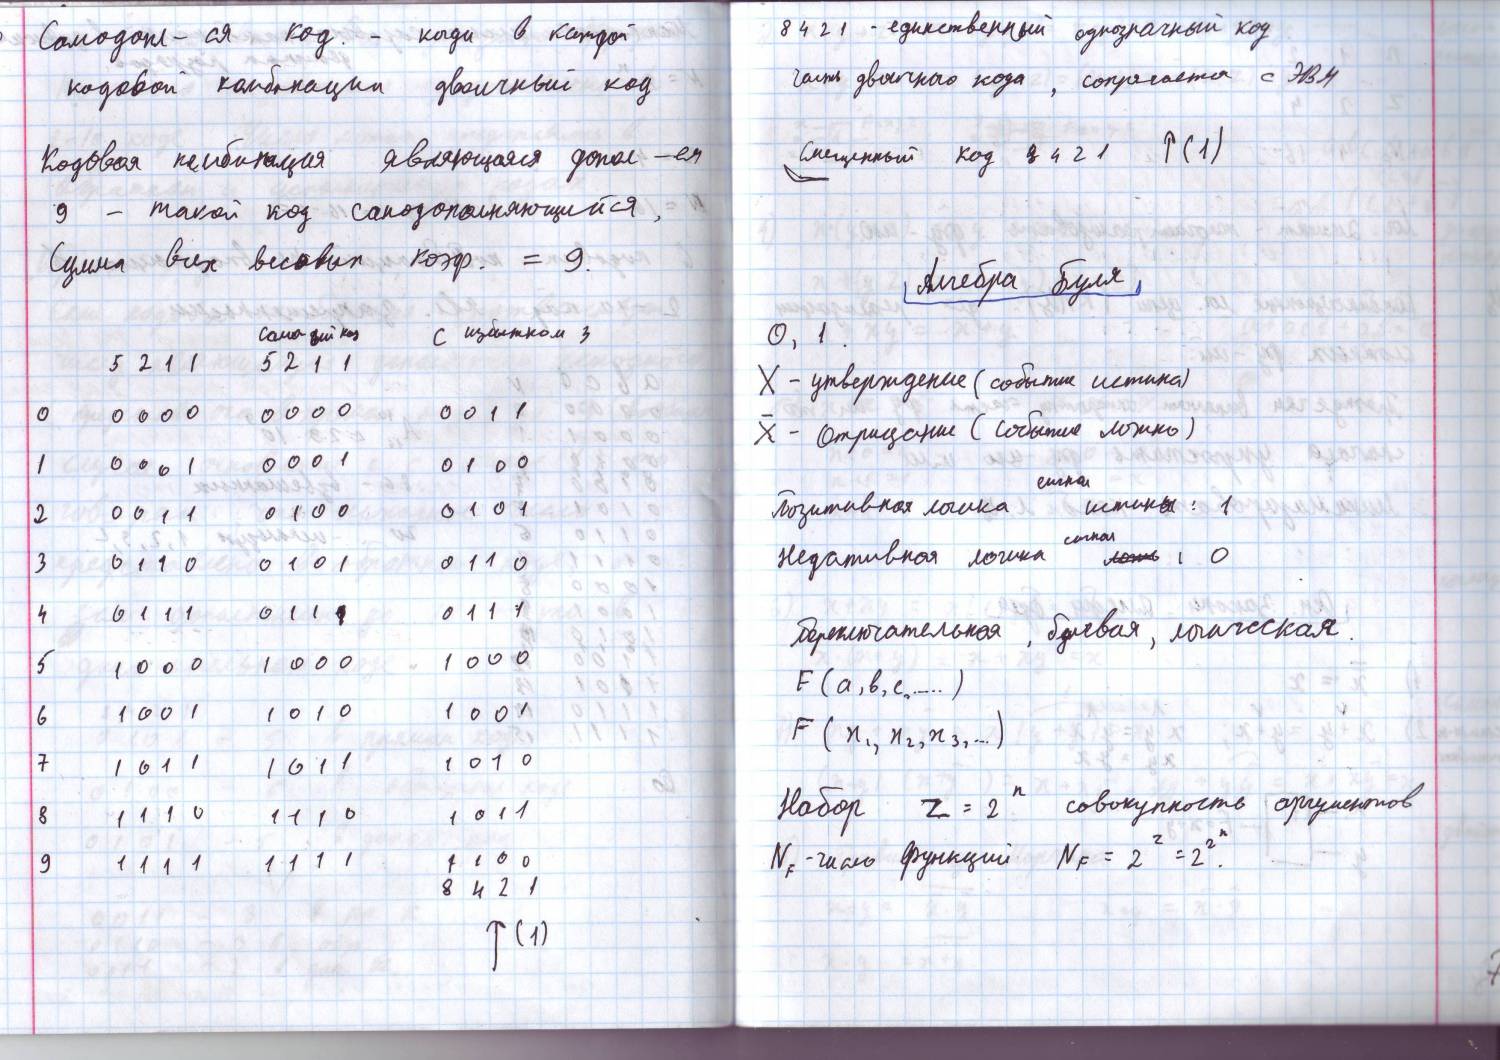 Самодопл-ся код. - когда в каждой
кодовой комбинации двоичный код
Кодовая комбинация являющаяся допол-ем
9 - такой код самодополняющийся,
Сумма всех весовых коэф. = 9.
с избытком 3
5 2 1 1 5 2 1 1
0 0 0 0 0 0 0 0 0 0 0 1 1
1 0 0 0 1 0 0 0 1 0 1 0 0
2 0 0 1 1 0 1 0 0 0 1 0 1
3 0 1 1 0 0 1 0 1 0 1 1 0
4 0 1 1 1 0 1 1 1 0 1 1 1
5 1 0 0 0 1 0 0 0 1 0 0 0
6 1 0 0 1 1 0 1 0 1 0 0 1
7 1 0 1 1 1 0 1 1 1 0 1 0
8 1 1 1 0 1 1 1 0 1 0 1 1
9 1 1 1 1 1 1 1 1 1 1 0 0
8 4 2 1
↑(1)
8 4 2 1 - единственный однозначный код
часть двоичного кода, сопрягается с ЭВМ
Смещенный код 8 4 2 1 ↑(1)
Алгебра Буля
0, 1.
X - утверждение (событие истина)
X̄ - Отрицание (событие ложно)
сигнал
Позитивная логика истины : 1
сигнал
Недативная логика ложь : 0
Переключательная, булевая, логическая.
F (a, b, c, .....)
F (x₁, x₂, x₃, ...)
Набор Z = 2ⁿ совокупность аргументов
N_F - число функций N_F = 2^z = 2^2^n.
7